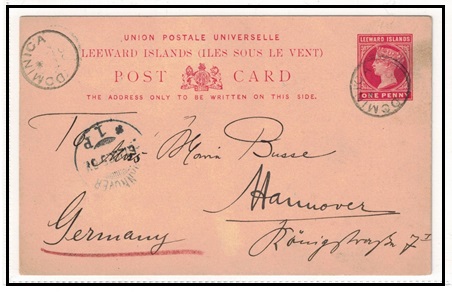 UNION POSTALE UNIVERSELLE
LEEWARD ISLANDS (ILES SOUS LE VENT)
POST CARD
THE ADDRESS ONLY TO BE WRITTEN ON THIS SIDE.
DOMINICA
LEEWARD ISLANDS
ONE PENNY
DOMINI
To
Miss Maria Busse
HANNOVER
1.P
Hannover
Germany
Königstraße 7